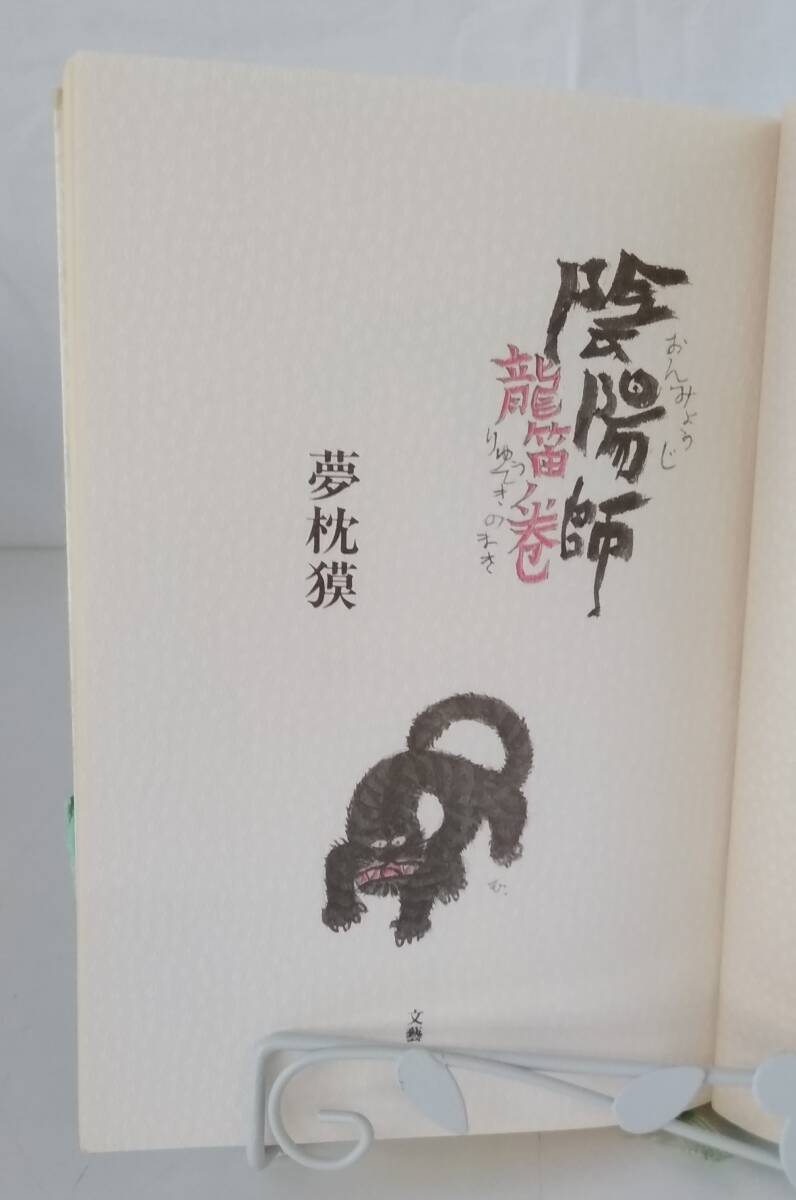 陰陽師
おんみょうじ
龍笛ノ巻
りゅうてきのまき
夢枕獏
む.
文藝